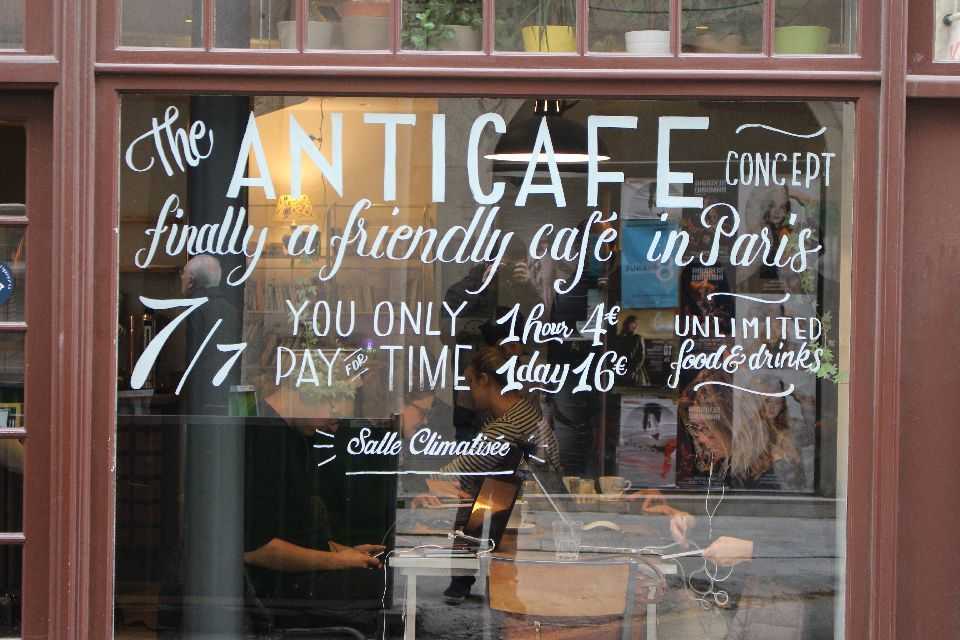 the ANTICAFE CONCEPT
finally a friendly café in Paris
7/7 YOU ONLY PAY FOR TIME
1 hour 4€
1 day 16€
UNLIMITED food & drinks
Salle Climatisée